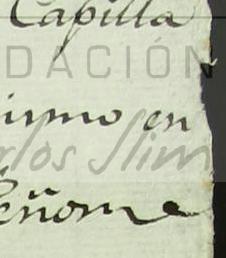 Capilla
DACIÓN
irmo en
rlos Slim
eñor me